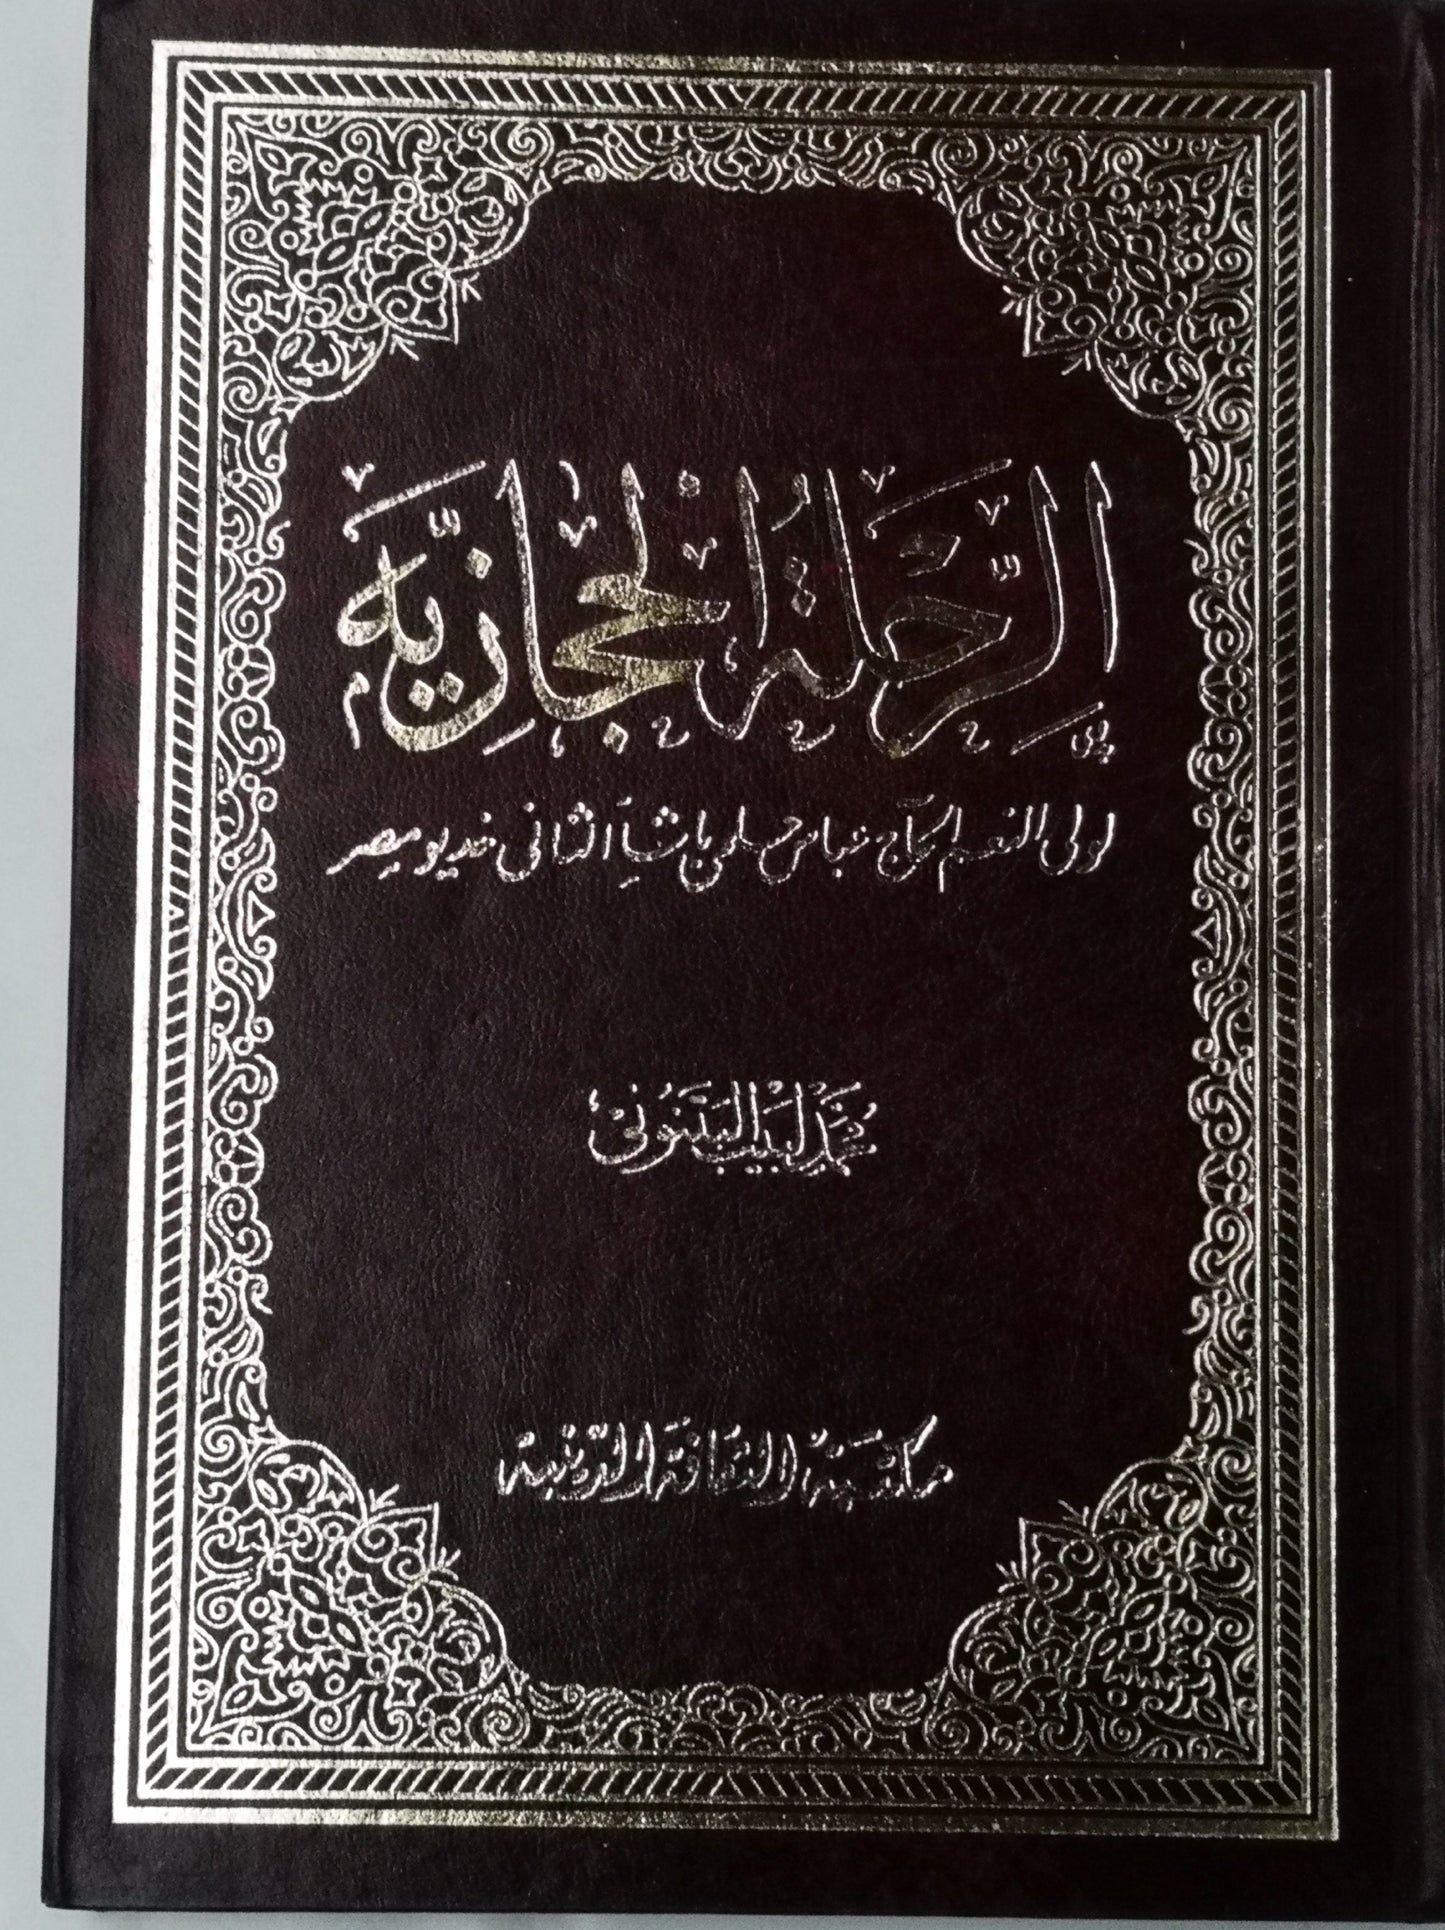 الرحلة الحجازية
لولى النعم الحاج عباس حلمى باشا الثانى خديو مصر
محمد لبيب البتنوني
مكتبة الثقافة الدينية